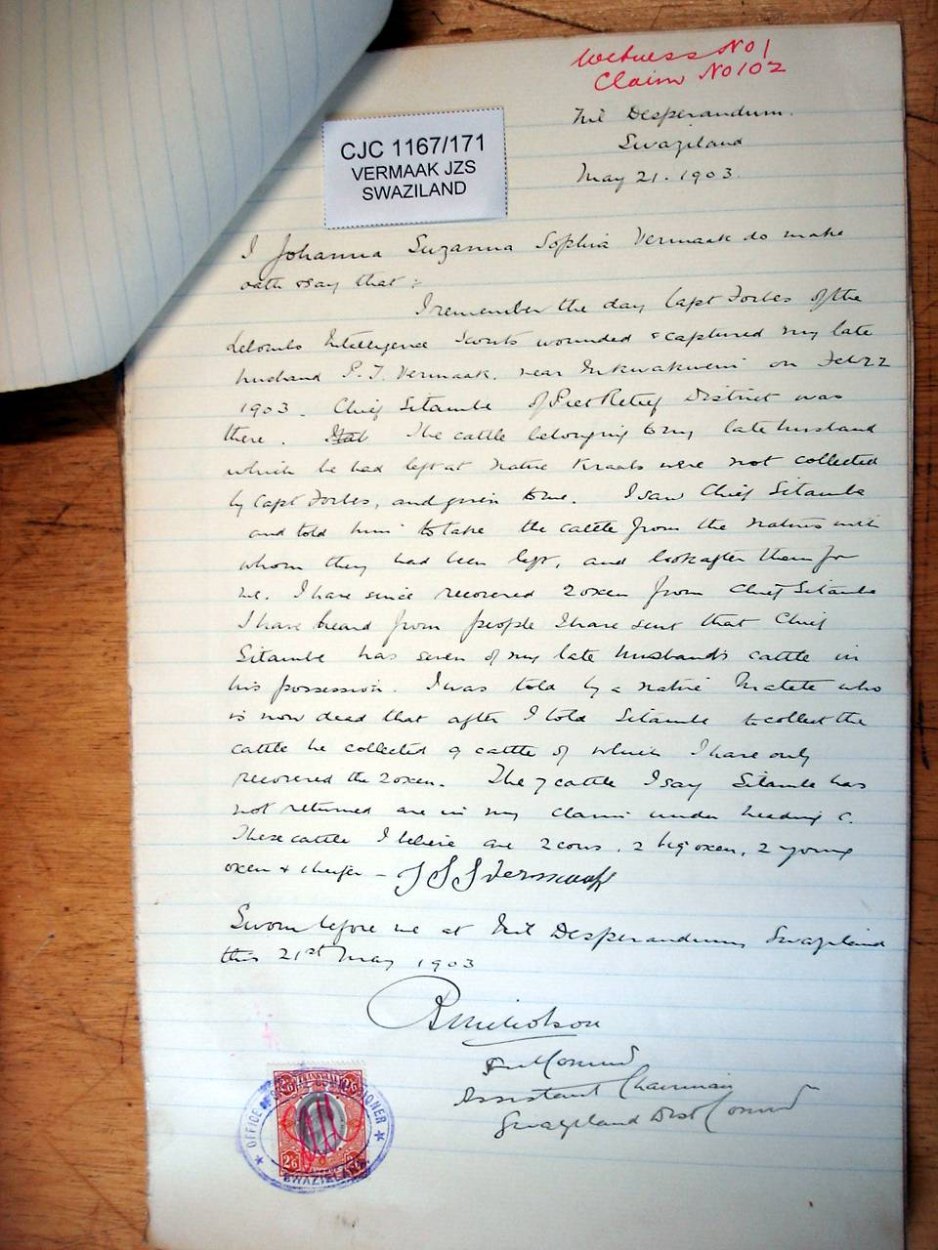 Witness No 1
Claim No 102
CJC 1167/171
VERMAAK JZS
SWAZILAND
Nil Desperandum.
Swaziland
May 21. 1903.
I Johanna Suzanna Sophia Vermaak do make
oath & say that :-
I remember the day Capt Forbes of the
Lebombo Intelligence Scouts wounded & captured my late
husband P. J. Vermaak. near on Feb 22
1903. Chief Sitambe of Piet Retief District was
there. The cattle belonging to my late husband
which he had left at native Kraals were not collected
by Capt Forbes, and given to me. I saw Chief Sitambe
and told him to take the cattle from the natives with
whom they had been left, and look after them for
me. I have since recovered 2 oxen from Chief Sitambe
I have heard from people I have sent that Chief
Sitambe has seven of my late husband's cattle in
his possession. I was told by a native Matete who
is now dead that after I told Sitambe to collect the
cattle he collected 9 cattle of which I have only
recovered the 2 oxen. The 7 cattle I say Sitambe has
not returned are in my claim under heading C.
These cattle I believe are 2 cows, 2 big oxen, 2 young
oxen & 1 heifer - J S S Vermaak
Sworn before me at Nil Desperandum, Swaziland
this 21st May 1903
Nicholson
Assistant Chairman
Swaziland Dist Commn
OFFICE OF
SWAZILAND
TRANSVAAL
2/6